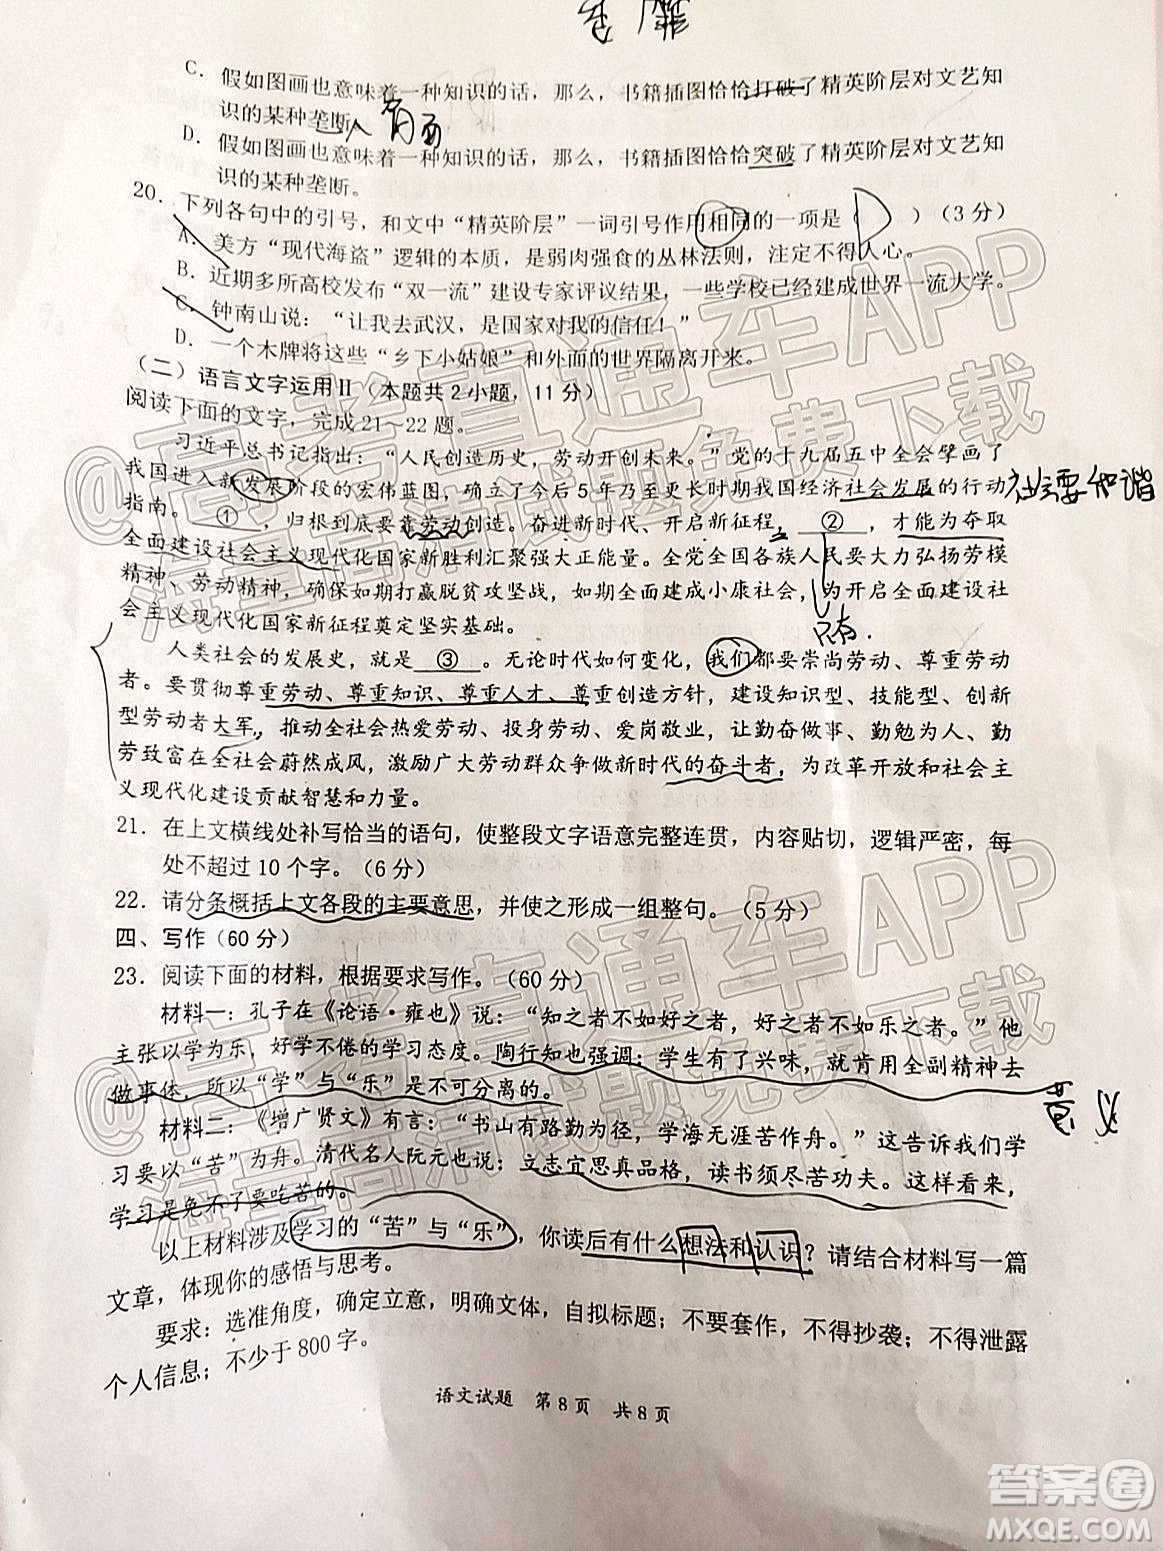 C．假如图画也意味着一种知识的话，那么，书籍插图恰恰打破了精英阶层对文艺知
识的某种垄断。
D．假如图画也意味着一种知识的话，那么，书籍插图恰恰突破了精英阶层对文艺知
识的某种垄断。
20．下列各句中的引号，和文中“精英阶层”一词引号作用相同的一项是（ D ）（3 分）
A．美方“现代海盗”逻辑的本质，是弱肉强食的丛林法则，注定不得人心。
B．近期多所高校发布“双一流”建设专家评议结果，一些学校已经建成世界一流大学。
C．钟南山说：“让我去武汉，是国家对我的信任！”
D．一个木牌将这些“乡下小姑娘”和外面的世界隔离开来。
（二）语言文字运用Ⅱ（本题共 2 小题，11 分）
阅读下面的文字，完成 21～22 题。
习近平总书记指出：“人民创造历史，劳动开创未来。”党的十九届五中全会擘画了
我国进入新发展阶段的宏伟蓝图，确立了今后 5 年乃至更长时期我国经济社会发展的行动
社会要和谐
指南。 ① ，归根到底要靠劳动创造。奋进新时代、开启新征程， ② ，才能为夺取
全面建设社会主义现代化国家新胜利汇聚强大正能量。全党全国各族人民要大力弘扬劳模
精神、劳动精神，确保如期打赢脱贫攻坚战，如期全面建成小康社会，为开启全面建设社
会主义现代化国家新征程奠定坚实基础。
只有．
人类社会的发展史，就是 ③ 。无论时代如何变化，我们都要崇尚劳动、尊重劳动
者。要贯彻尊重劳动、尊重知识、尊重人才、尊重创造方针，建设知识型、技能型、创新
型劳动者大军，推动全社会热爱劳动、投身劳动、爱岗敬业，让勤奋做事、勤勉为人、勤
劳致富在全社会蔚然成风，激励广大劳动群众争做新时代的奋斗者，为改革开放和社会主
义现代化建设贡献智慧和力量。
21．在上文横线处补写恰当的语句，使整段文字语意完整连贯，内容贴切，逻辑严密，每
处不超过 10 个字。（6 分）
22．请分条概括上文各段的主要意思，并使之形成一组整句。（5 分）
四、写作（60 分）
23．阅读下面的材料，根据要求写作。（60 分）
材料一：孔子在《论语·雍也》说：“知之者不如好之者，好之者不如乐之者。”他
主张以学为乐，好学不倦的学习态度。陶行知也强调：学生有了兴味，就肯用全副精神去
做事体，所以“学”与“乐”是不可分离的。
材料二：《增广贤文》有言：“书山有路勤为径，学海无涯苦作舟。”这告诉我们学
习要以“苦”为舟。清代名人阮元也说：文志宜思真品格，读书须尽苦功夫。这样看来，
学习是免不了要吃苦的。
以上材料涉及学习的“苦”与“乐”，你读后有什么想法和认识？请结合材料写一篇
文章，体现你的感悟与思考。
要求：选准角度，确定立意，明确文体，自拟标题；不要套作，不得抄袭；不得泄露
个人信息；不少于 800 字。
语文试题 第 8 页 共 8 页
@高考直通车APP
海量高清试题免费下载
@高考直通车APP
海量高清试题免费下载
答案圈
MXQE.COM